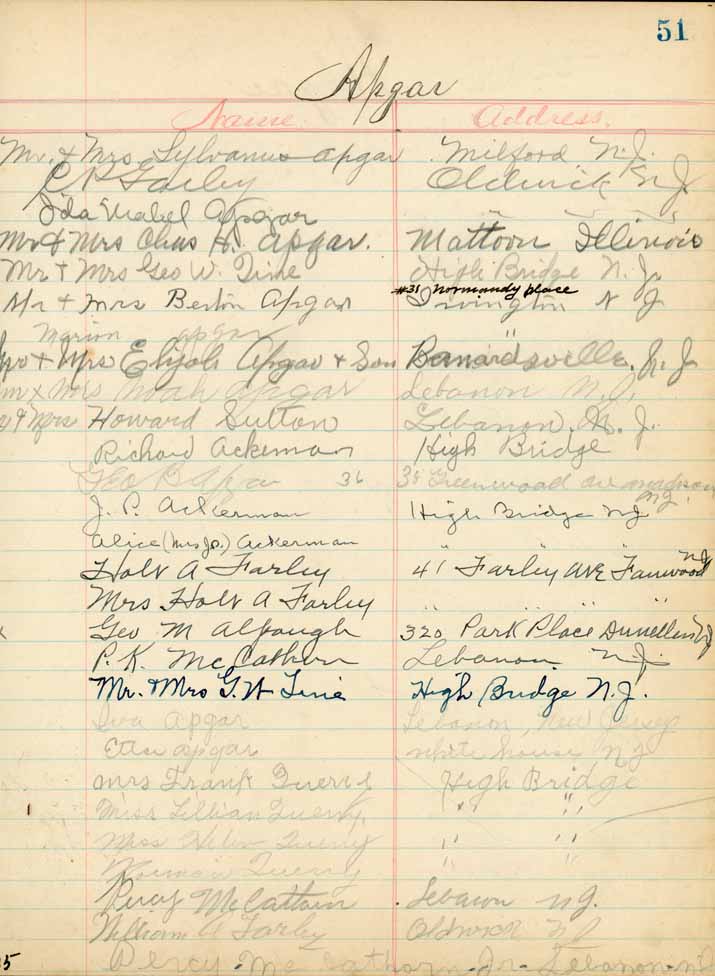 51
Apgar
Name. Address.
Mr. & Mrs Sylvanus Apgar . Milford N.J.
C P Farley Oldwick N.J.
Ida Mabel Apgar
Mr & Mrs Chas H. Apgar. Mattoon Illinois
Mr + Mrs Geo W. Tine High Bridge N. J.
#31 Normandy place
Mr + Mrs Bertin Apgar Irvington N J
Marion Apgar "
Mr + Mrs Elijah Apgar & Son Bernardsville, N. J.
Mrs Noah Apgar Lebanon N.J.
& Mrs Howard Sutton Lebanon, N. J.
Richard Ackerman High Bridge
Geo B Apgar 36 38 Greenwood ave Madison
NJ.
J. P. Ackerman High Bridge NJ
Alice (Mrs Jr.) Ackerman
Holt A Farley 41 Farley Ave Fanwood NJ
Mrs Holt A Farley " " " "
x Geo M Alpaugh 320 Park Place Dunellen NJ
P. K. McCathern Lebanon. N.J.
Mr. & Mrs G. W Tine High Bridge N.J.
Iva Apgar Lebanon, New Jersey
Etta Apgar White house NJ
Mrs Frank Queeny High Bridge
Miss Lillian Queeny, " "
Miss Helen Queeny " "
Norman Queeny
Percy McCattern . Lebanon NJ.
William A Farley Oldwick NJ
5 Percy Mc Jr. Lebanon N